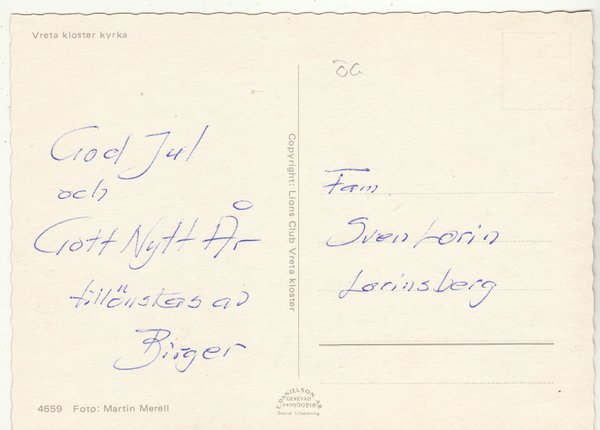 Vreta kloster kyrka
ÖG
God Jul
och
Gott Nytt År
tillönskas av
Birger
Copyright: Lions Club Vreta kloster
Fam
Sven Lorin
Lorinsberg
4659 Foto: Martin Merell
E. DANIELSON AB
GENEVAD
0430/70218
Svensk tillverkning